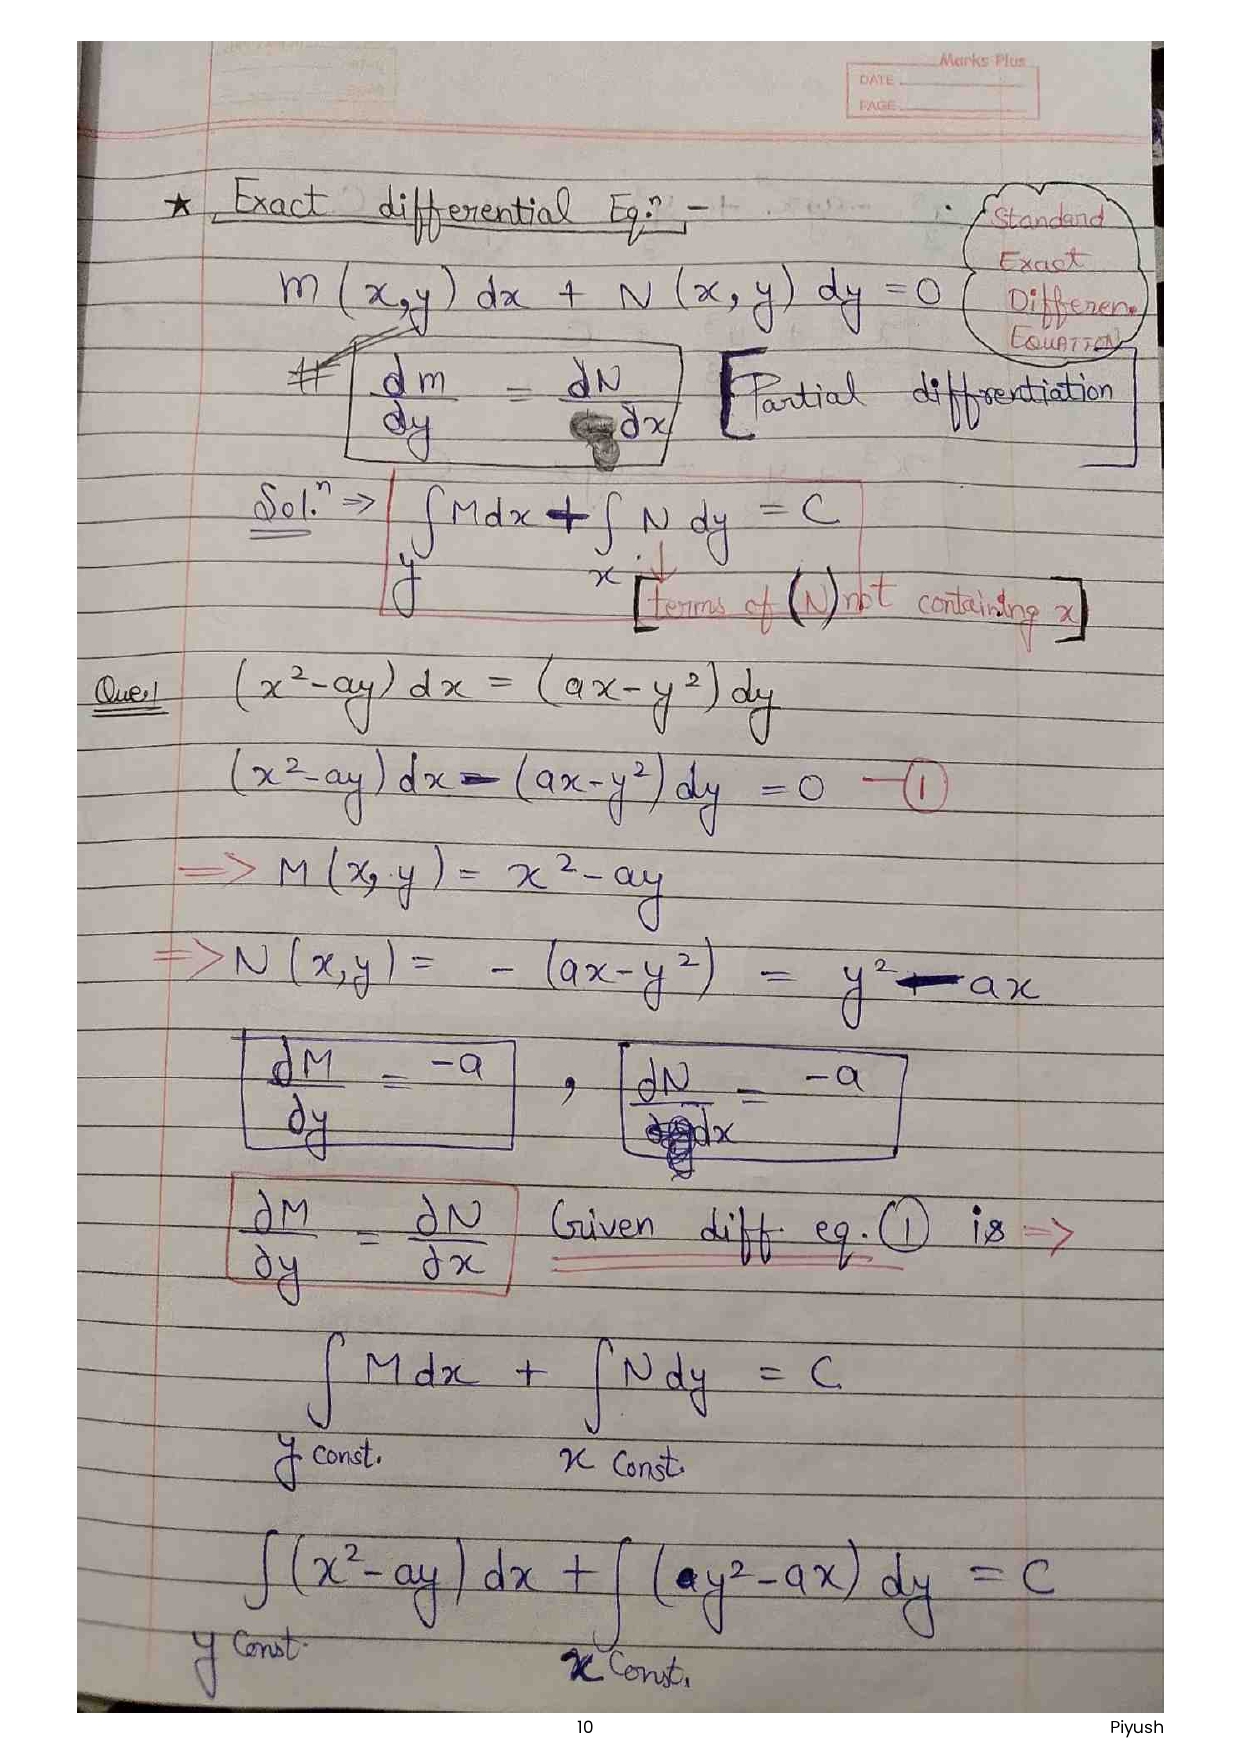 Marks Plus
DATE
PAGE
★ Exact differential Eq.ⁿ -
Standard
Exact
Differen.
EQUATION
m(x,y) dx + N(x,y) dy = 0
# ∂m/∂y = ∂N/∂x [Partial diffrentiation]
Sol.ⁿ ⇒ ∫y Mdx + ∫x N dy = C
[terms of (N) not containing x]
Que.1 (x²-ay) dx = (ax-y²) dy
(x²-ay) dx - (ax-y²) dy = 0 —①
⇒ M(x,y) = x²-ay
⇒ N(x,y) = -(ax-y²) = y² - ax
∂M/∂y = -a , ∂N/dx = -a
∂M/∂y = ∂N/∂x Given diff eq. ① is ⇒
∫ Mdx + ∫ Ndy = C
y const. x const.
∫(x²-ay) dx + ∫(y²-ax) dy = C
y const. x const.
10
Piyush